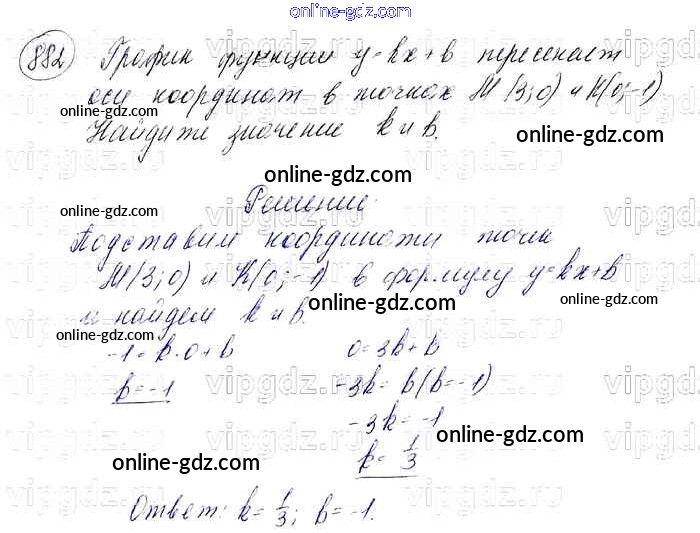 online-gdz.com
882 График функции y=kx+b пересекает
оси координат в точках M(3;0) и K(0;-1)
Найдите значение k и b.
online-gdz.com
online-gdz.com
online-gdz.com
Решение:
online-gdz.com
online-gdz.com
Подставим координаты точек
M(3;0) и K(0;-1) в формулу y=kx+b
online-gdz.com
online-gdz.com
и найдем k и b.
online-gdz.com
-1=k·0+b 0=3k+b
b=-1 -3k=b(b=-1)
-3k=-1
online-gdz.com
k=1/3
online-gdz.com
Ответ: k=1/3; b=-1.
online-gdz.com